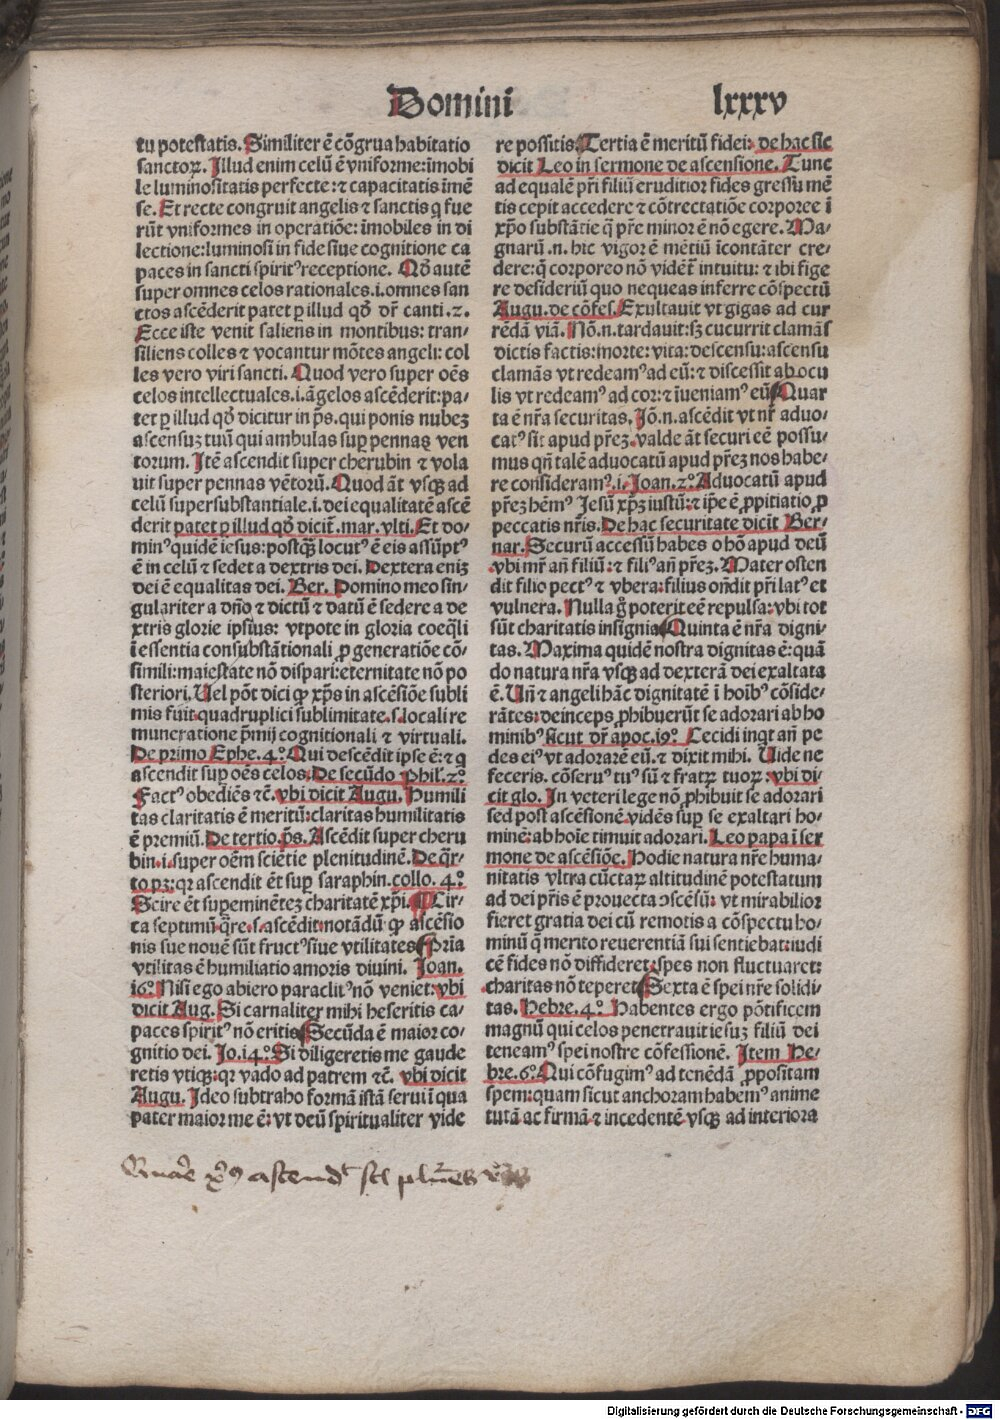 Domini lxxxv
tu potestatis. Similiter ē cōgrua habitatio
sanctoꝝ. Illud enim celū ē vniforme: īmobi
le luminositatis perfecte: ⁊ capacitatis īmē
se. Et recte congruit angelis ⁊ sanctis q̄ fue
rūt vniformes in operatiōe: īmobiles in di
lectione: luminosi in fide siue cognitione ca
paces in sancti spiritꝰ receptione. Qd̓ autē
super omnes celos rationales .i. omnes san
ctos ascēderit patet ꝑ illud qd̓ dr̄ canti. 2.
Ecce iste venit saliens in montibus: tran-
siliens colles ⁊ vocantur mōtes angeli: col
les vero viri sancti. Quod vero super oēs
celos intellectuales .i. āgelos ascēderit: pa-
tet ꝑ illud qd̓ dicitur in ps̄. qui ponis nubeꝫ
ascensuꝫ tuū qui ambulas suꝑ pennas ven
torum. Itē ascendit super cherubin ⁊ vola
uit super pennas vētorū. Quod āt vsqꝫ ad
celū supersubstantiale .i. dei equalitatē ascē
derit patet ꝑ illud qd̓ dicit̄ . mar. vlti. Et do-
minꝰ quidē iesus: postqꝫ locutꝰ ē eis assūptꝰ
ē in celū ⁊ sedet a dextris dei. Dextera eniꝫ
dei ē equalitas dei. Ber. Domino meo sin-
gulariter a dn̄o ⁊ dictū ⁊ datū ē sedere a de
xtris glorie ipsius: vtpote in gloria coeq̄li
ī essentia consubstātionali ꝓ generatiōe cō-
simili: maiestate nō dispari: eternitate nō po
steriori. Uel pōt dici ꝙ xp̄s in ascēsiōe subli
mis fuit quadruplici sublimitate .s. locali re
muneratione p̄mij cognitionali ⁊ virtuali.
De primo Ephe. 4.º Qui descēdit ipse ē: ⁊ q̄
ascendit suꝑ oēs celos. De secūdo Phil'. 2.º
Factꝰ obediēs ⁊c̄. vbi dicit Augu. Humili
tas claritatis ē meritū: claritas humilitatis
ē premiū. De tertio ps̄. Ascēdit super cheru
bin .i. super oēm sciētie plenitudinē. De q̄r-
to pꝫ: qꝛ ascendit ēt suꝑ saraphin. collo. 4.º
Scire ēt supeminēteꝫ charitatē xp̄i. ¶ Cir-
ca septimū q̄re .s. ascēdit: notādū ꝙ ascēsio
nis sue nouē sūt fructꝰ siue vtilitates Prīa
vtilitas ē humiliatio amoris diuini. Joan.
16.º Nisi ego abiero paraclitꝰ nō veniet: vbi
dicit Aug. Si carnaliter mihi heseritis ca-
paces spiritꝰ nō eritis Secūda ē maior co-
gnitio dei. Jo. i4.º Si diligeretis me gaude
retis vtiqꝫ: qꝛ vado ad patrem ⁊c̄. vbi dicit
Augu. Ideo subtraho formā istā serui ī qua
pater maior me ē: vt deū spiritualiter vide
re possitis. Tertia ē meritū fidei: de hac sic
dicit Leo in sermone de ascensione. Tunc
ad equalē pr̄i filiū eruditioꝛ fides gressu mē
tis cepit accedere ⁊ cōtrectatiōe corporee ī
xp̄o substātie q̄ pr̄e minor ē nō egere. Ma-
gnarū .n. hic vigor ē mētiū īcontāter cre-
dere: q̄ corporeo nō vidēt̄ intuitu: ⁊ ibi fige
re desideriū quo nequeas inferre cōspectū
Augu. de cōfes. Exultauit vt gigas ad cur
rēdā viā. Nō .n. tardauit: sꝫ cucurrit clamās
dictis factis: morte: vita: descensu: ascensu
clamās vt redeamꝰ ad eū: ⁊ discessit ab ocu
lis vt redeamꝰ ad cor: ⁊ īueniamꝰ eū Quar
ta ē nr̄a securitas. Jō .n. ascēdit vt nr̄ aduo-
catꝰ sit apud pr̄eꝫ. valde āt securi eē possu-
mus qn̄ talē aduocatū apud pr̄eꝫ nos habe-
re consideramꝰ .i. Joan. 2.º Aduocatū apud
pr̄eꝫ hēmꝰ Jesū xp̄ꝫ iustū: ⁊ ip̄e ē ꝓpitiatio ꝓ
peccatis nr̄is. De hac securitate dicit Ber-
nar. Securū accessū habes o hō apud deū
vbi mr̄ an̄ filiū: ⁊ filiꝰ an̄ pr̄eꝫ. Mater osten
dit filio pectꝰ ⁊ vbera: filius on̄dit pr̄i latꝰ et
vulnera. Nulla g̊ poterit eē repulsa: vbi tot
sūt charitatis insignia Quinta ē nr̄a digni-
tas. Maxima quidē nostra dignitas ē: quā
do natura nr̄a vsqꝫ ad dexterā dei exaltata
ē. Un̄ ⁊ angeli hāc dignitatē ī hoībꝰ cōside-
rātes: deinceps ꝓhibuerūt se adorari ab ho
minibꝰ sicut dr̄ apoc. 19.º Cecidi inqt an̄ pe
des eiꝰ vt adorarē eū. ⁊ dixit mihi. Uide ne
feceris. cōseruꝰ tuꝰ sū ⁊ fratrꝫ tuoꝝ: vbi di
cit glo. In veteri lege nō ꝓhibuit se adorari
sed post ascēsionē vidēs suꝑ se exaltari ho-
minē: ab hoīe timuit adorari. Leo papa ī ser
mone de ascēsiōe. Hodie natura nr̄e huma-
nitatis vltra cūctaꝝ altitudinē potestatum
ad dei pr̄is ē prouecta ↄscēsū: vt mirabilior
fieret gratia dei cū remotis a cōspectu ho-
minū q̄ merito reuerentiā sui sentiebat: iudi
cē fides nō diffideret: spes non fluctuaret:
charitas nō teperet Sexta ē spei nr̄e solidi
tas. Hebre. 4.º Habentes ergo pōtificem
magnū qui celos penetrauit iesuꝫ filiū dei
teneamꝰ spei nostre cōfessionē. Item He-
bre. 6.º Qui cōfugimꝰ ad tenēdā ꝓpositam
spem: quam sicut anchoram habemꝰ anime
tutā ac firmā ⁊ incedentē vsqꝫ ad interiora
Quare xp̄s ascendit scd̓
Digitalisierung gefördert durch die Deutsche Forschungsgemeinschaft - DFG